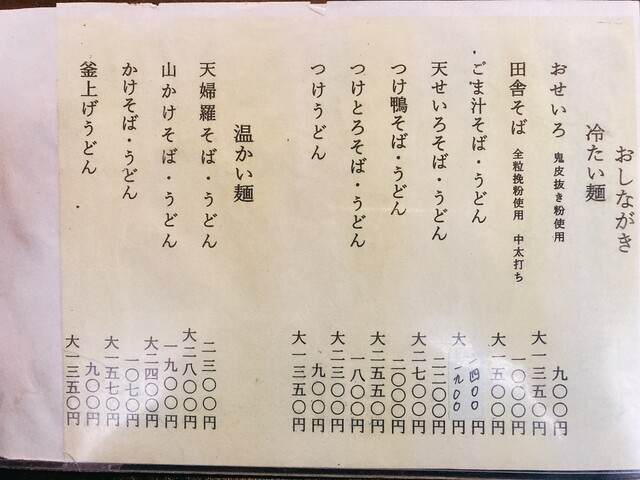 おしながき
冷たい麺
おせいろ 鬼皮抜き粉使用 九〇〇円
大一三五〇円
田舎そば 全粒挽粉使用 中太打ち 一〇〇〇円
大一五〇〇円
ごま汁そば・うどん 一四〇〇円
大一九〇〇円
天せいろそば・うどん 二二〇〇円
大二七〇〇円
つけ鴨そば・うどん 二〇〇〇円
大二五五〇円
つけとろそば・うどん 一八〇〇円
大二三〇〇円
つけうどん 九〇〇円
大一三五〇円
温かい麺
天婦羅そば・うどん 二三〇〇円
大二八〇〇円
山かけそば・うどん 一九〇〇円
大二四〇〇円
かけそば・うどん 一〇七〇円
大一五七〇円
釜上げうどん 九〇〇円
大一三五〇円